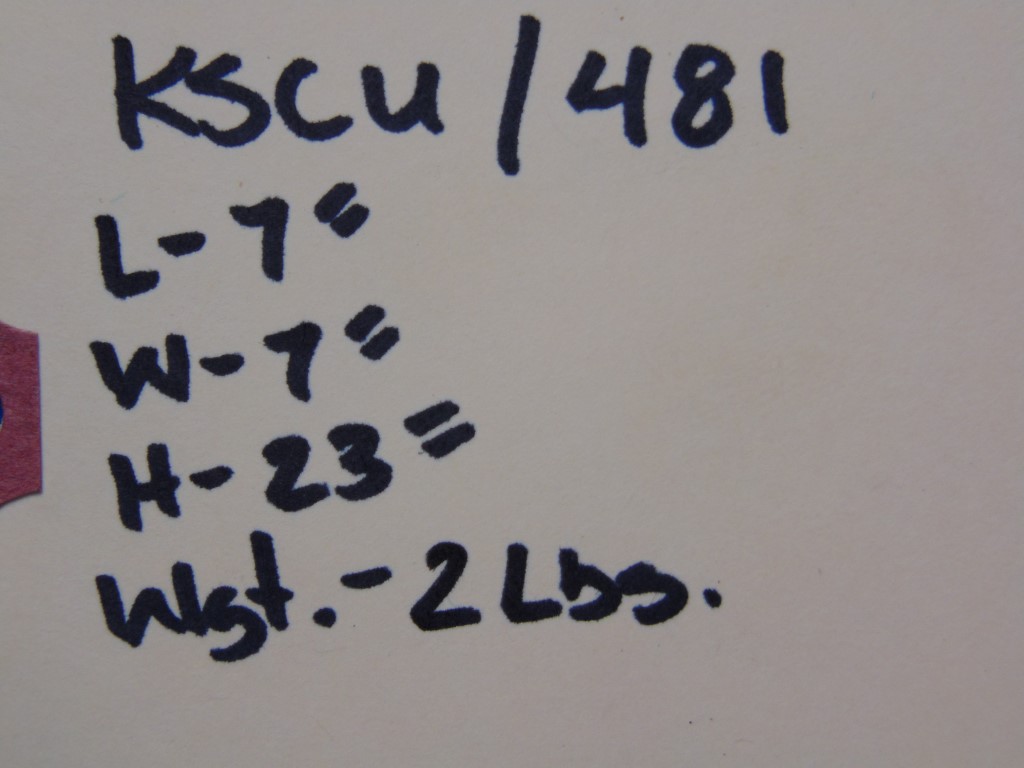 KSCU/481
L-7"
W-7"
H-23"
Wgt.-2 Lbs.